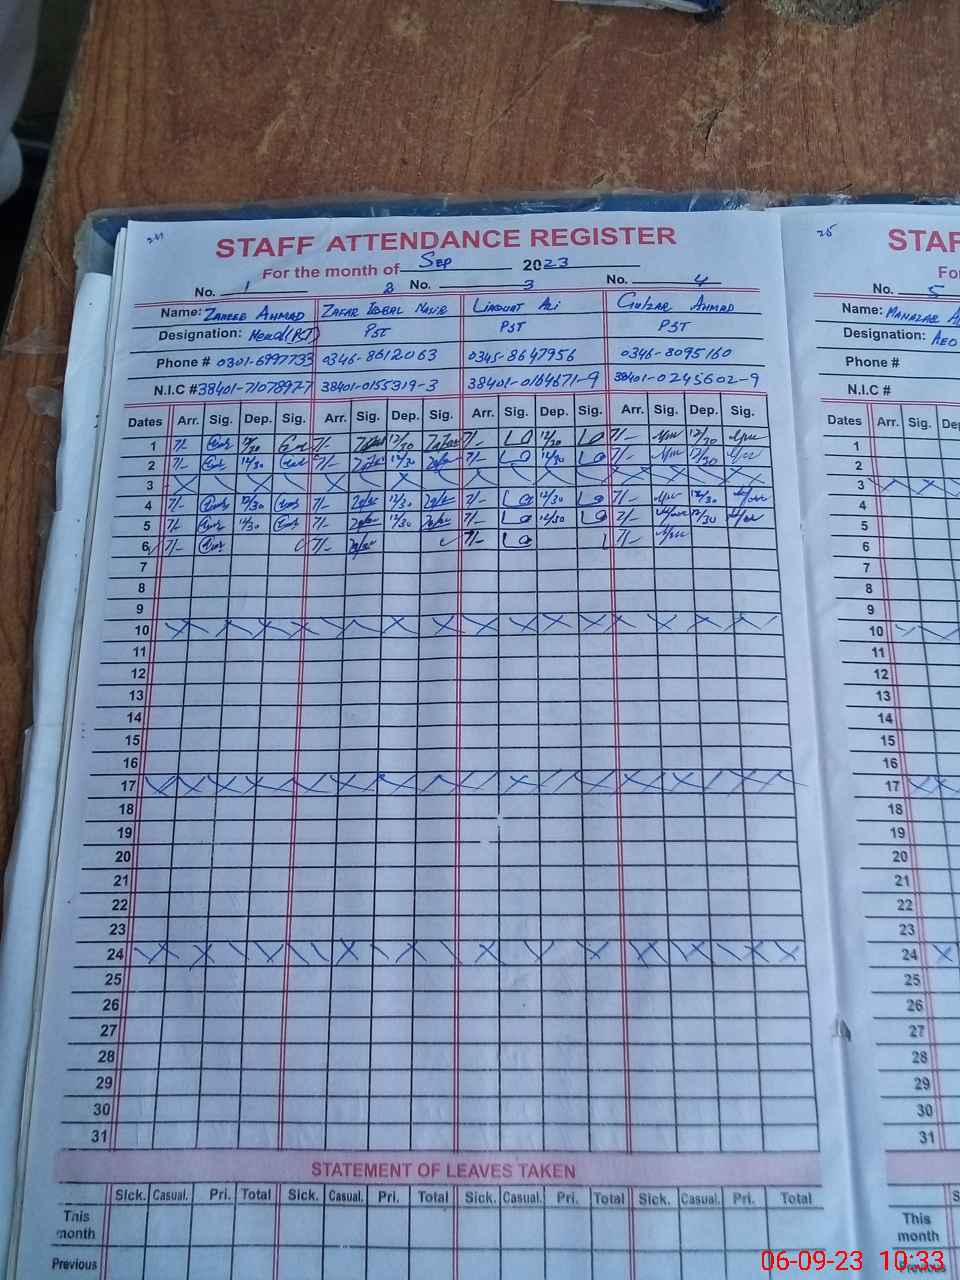 STAFF ATTENDANCE REGISTER
For the month of Sep 2023
No. 1 2 No. 3 No. 4
Name: ZAHEER AHMAD ZAFAR IQBAL NASIR LIAQUAT ALI GULZAR AHMAD
Designation: Head (PST) PST PST PST
Phone # 0301-6997733 0346-8612063 0345-8647956 0346-8095160
N.I.C # 38401-7107897-7 38401-0155319-3 38401-0164671-9 38401-0245602-9
Dates Arr. Sig. Dep. Sig. Arr. Sig. Dep. Sig. Arr. Sig. Dep. Sig. Arr. Sig. Dep. Sig.
1 7/- 12/30 7/- 12/30 7/- 12/30 7/- 12/30
2 7/- 12/30 7/- 12/30 7/- 12/30 7/- 12/30
3
4 7/- 12/30 7/- 12/30 7/- 12/30 7/- 12/30
5 7/- 12/30 7/- 12/30 7/- 12/30 7/- 12/30
6 7/- 7/- 7/- 7/-
7
8
9
10
11
12
13
14
15
16
17
18
19
20
21
22
23
24
25
26
27
28
29
30
31
STATEMENT OF LEAVES TAKEN
Sick. Casual. Pri. Total Sick. Casual. Pri. Total Sick. Casual. Pri. Total Sick. Casual. Pri. Total
This month
Previous
25
STAF
Fo
No. 5
Name: MANAZAR A
Designation: AEO
Phone #
N.I.C #
Dates Arr. Sig. De
1
2
3
4
5
6
7
8
9
10
11
12
13
14
15
16
17
18
19
20
21
22
23
24
25
26
27
28
29
30
31
S
This month
Previous
06-09-23 10:33